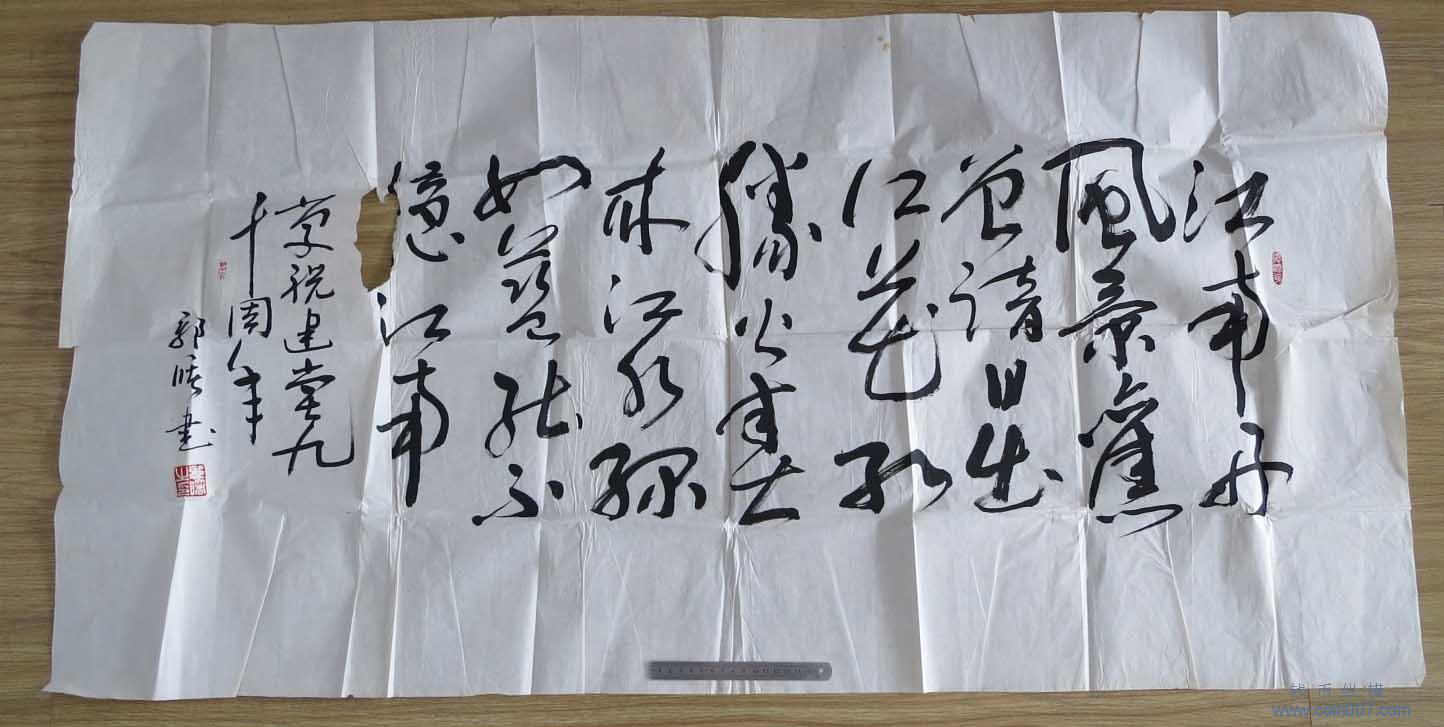 江南好
風景舊
曾諳日出
江花紅
勝火春
來江水綠
如藍能不
憶江南
慶祝建黨九
十周年
郭書
钱币纵横
www.coin007.com